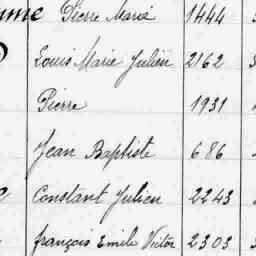 Pierre Marie 1444
Louis Marie Julien 2162
Pierre 1931
Jean Baptiste 686
Constant Julien 2243
françois Emile Victor 2303